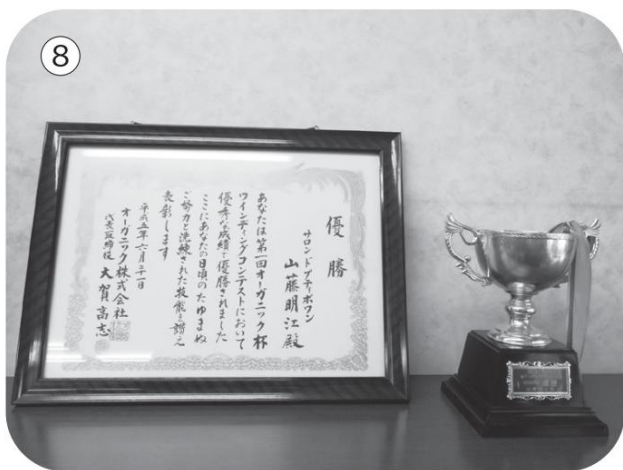 ⑧
優勝
サロンドプティボワン
山藤明江殿
あなたは第一回オーガニック杯
ワインディングコンテストにおいて
優秀な成績で優勝されました
ここにあなたの日頃のたゆまぬ
ご努力と洗練された技能を讃え
表彰します
平成五年六月二十一日
オーガニック株式会社
代表取締役 大賀高志